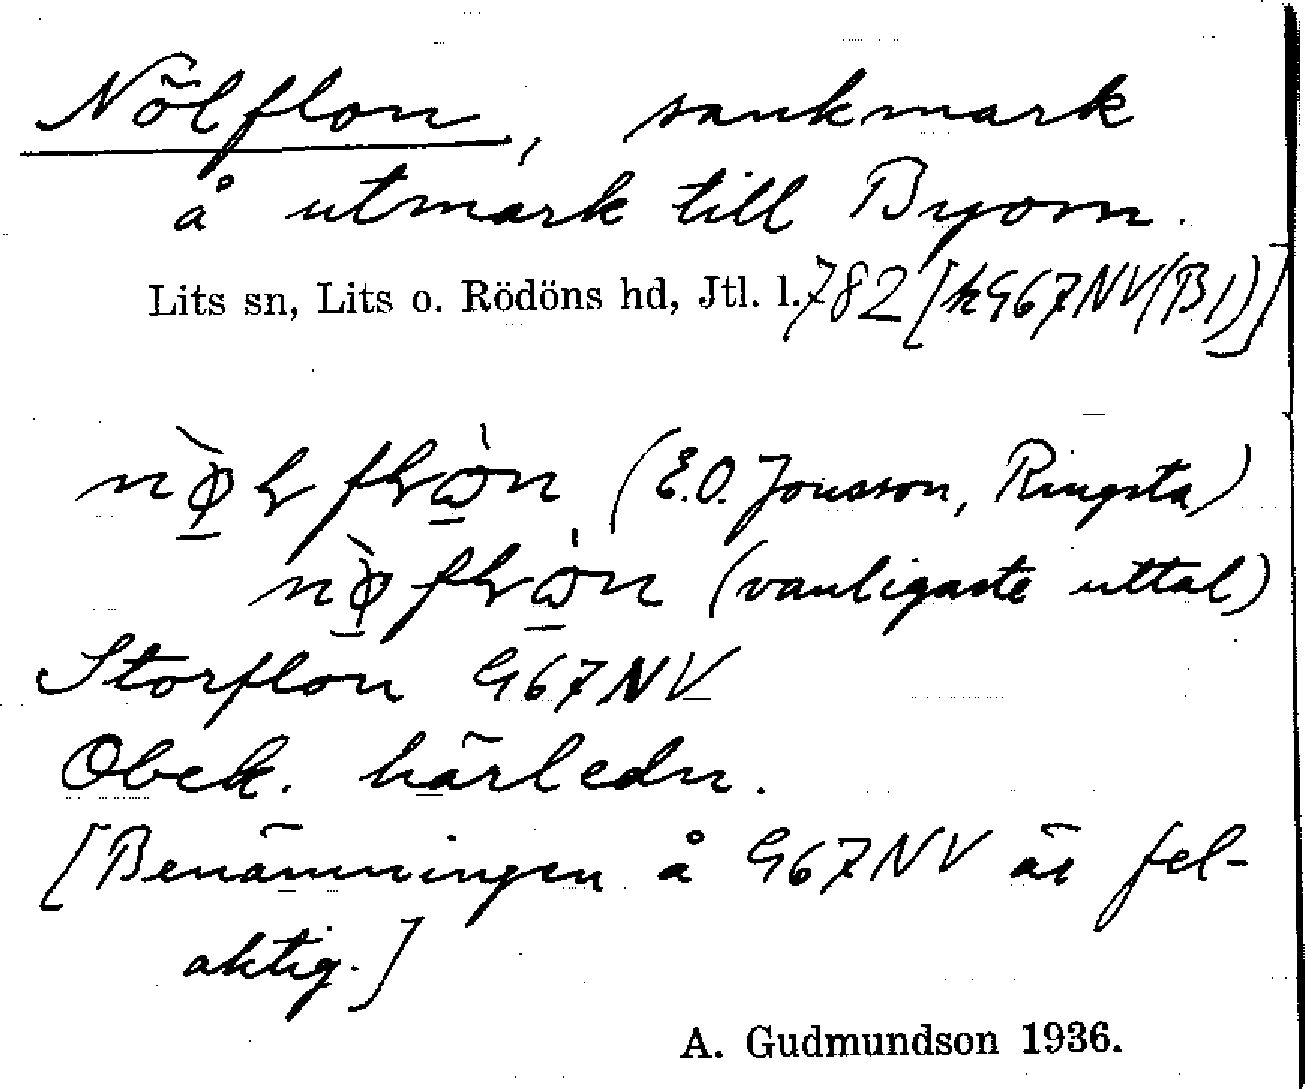 Nölflon, sankmark
å utmark till Byom.
Lits sn, Lits o. Rödöns hd, Jtl. l. 782 [k 967NV(B1)]
(E.O. Jonsson, Ringsta)
(vanligaste uttal)
Storflon 967NV
Obek. härledn.
[Benämningen å 967NV är fel-
aktig.]
A. Gudmundson 1936.